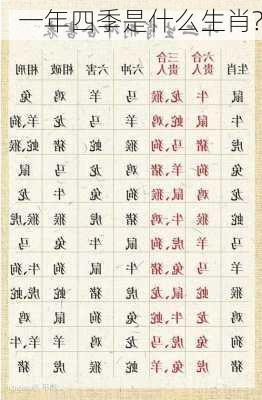 一年四季是什么生肖?
生肖 六合贵人 三合贵人 六冲 六害 相破 相刑
鼠 牛 龙,猴 马 羊 鸡 兔
牛 鼠 蛇,鸡 羊 马 龙 羊,狗
虎 猪 马,狗 猴 蛇 猪 蛇,猴
兔 狗 羊,猪 鸡 龙 马 鼠
龙 鸡 鼠,猴 狗 兔 牛 龙
蛇 猴 牛,鸡 猪 虎 猴 虎,猴
马 羊 虎,狗 鼠 牛 兔 马
羊 马 兔,猪 牛 鼠 狗 牛,狗
猴 蛇 鼠,龙 虎 猪 蛇 虎,蛇
鸡 龙 牛,蛇 兔 狗 鼠 鸡
狗 兔 虎,马 龙 鸡 羊 牛,羊
猪 虎 兔,羊 蛇 猴 虎 猪